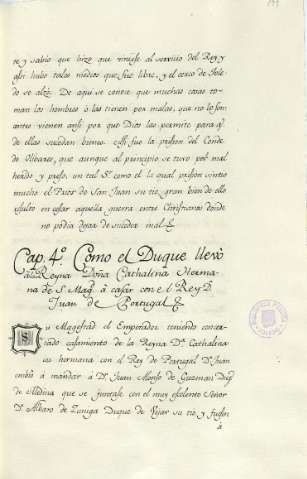 te y sabio que hizo que viniese al servicio del Rey y
asi hubo todos medios que fue libre, y el cerco de Tole
do se alzó. De aqui se coniee que muchas cosas to
man los hombres ó las tienen por malas, que no lo son
antes vienen assi por que Dios las permite para qe
de ellas suceden bienes. Assi fue la prision del Conde
de Olivares, que aunque al principio se tuvo por mal
hecho y preso, un tal Sr. como el lo qual prision sintio
mucho el Prior de San Juan su tio, gran bien de ello
resulto en cesar aquella guerra entre Christianos donde
no podia dejar de suceder mal
Cap. 4º. Como el Duque llevó
a la Reyna Doña Cathalina Herma
na de S. Magd. á casar con el Rey D.
Juan de Portugal
Su Magestad el Emperador teniendo concer
tado casamiento de la Reyna Dª. Cathalina
su hermana con el Rey de Portugal Dn. Juan
embió á mandar á Dn. Juan Alonso de Guzman Duqe
de Medina que se juntase con el muy excelente Señor
Dn. Alvaro de Zuniga Duque de Vejar su tio y fuesen
á